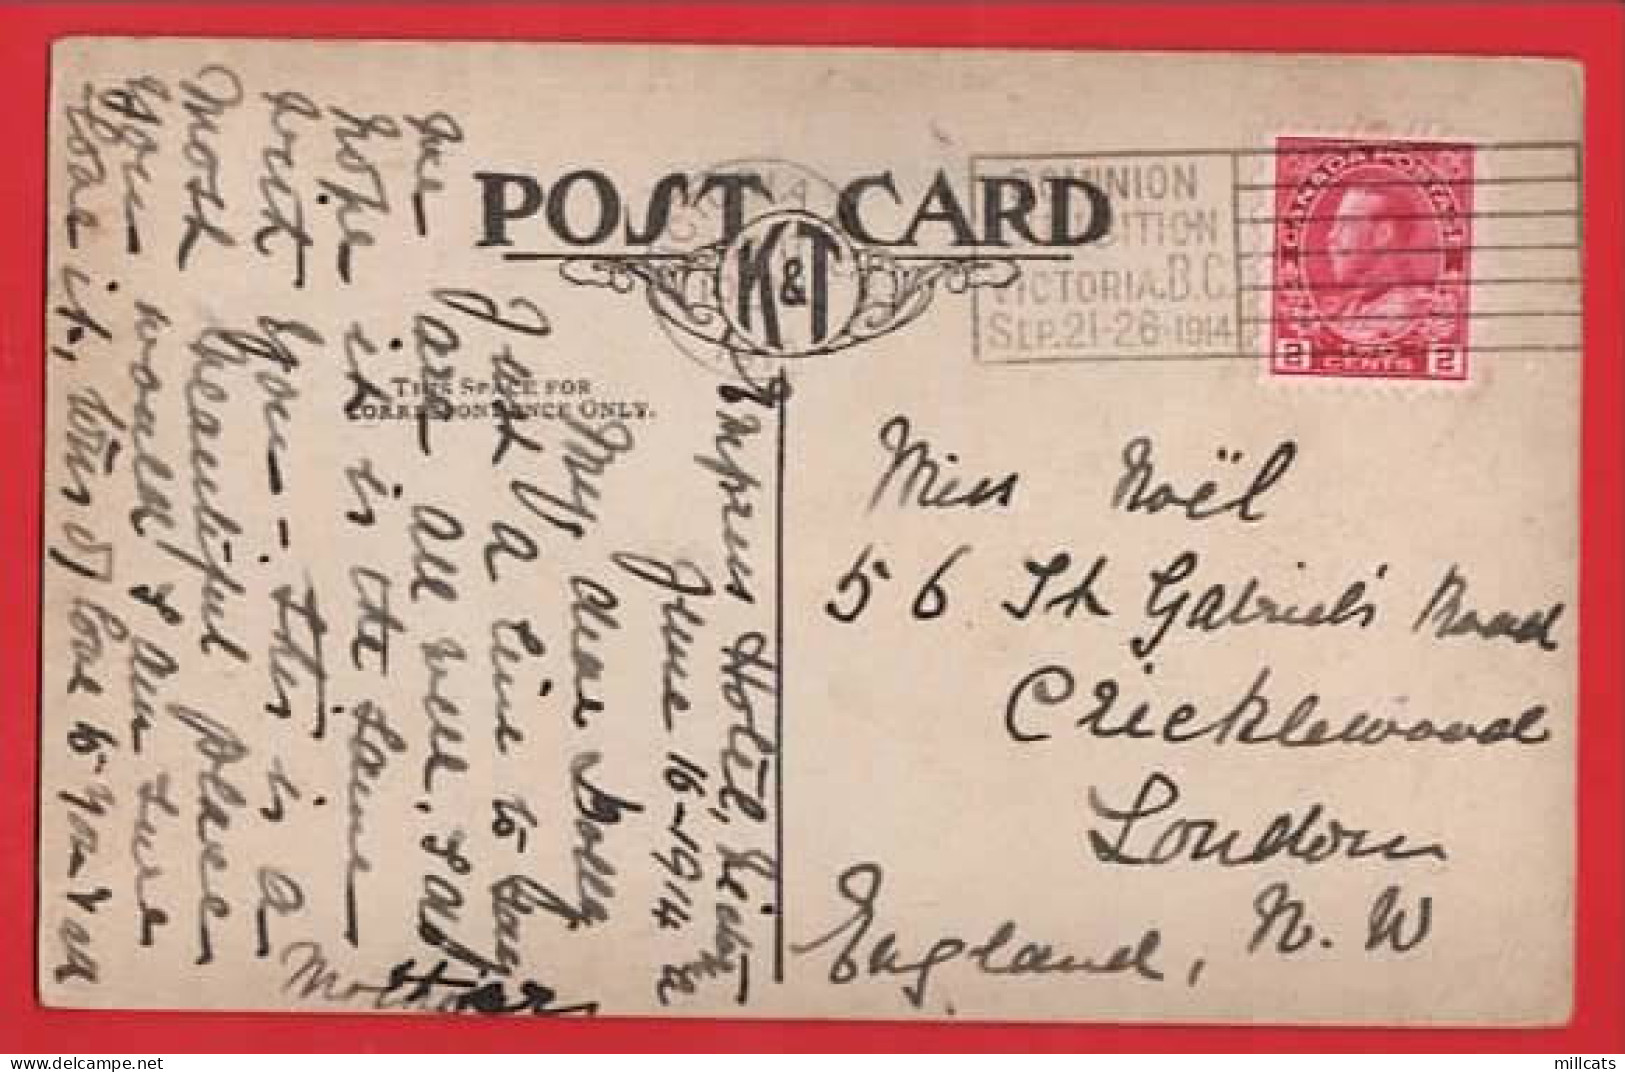 POST CARD
K&T
THIS SPACE FOR
CORRESPONDENCE ONLY.
DOMINION
EXHIBITION
VICTORIA.B.C.
SEP.21-26-1914
CANADA POSTAGE
2 TWO CENTS 2
Miss Noël
56 St Gabriel's Road
Cricklewood
London
N. W
England,
Empress Hotel,
June 16-1914
My dear Dolly,
Just a line to say
we are all well, &
hope it is the same
with you - This is a
Most beautiful place
you would I am sure
love it, with love to you & all
Mother
millcats